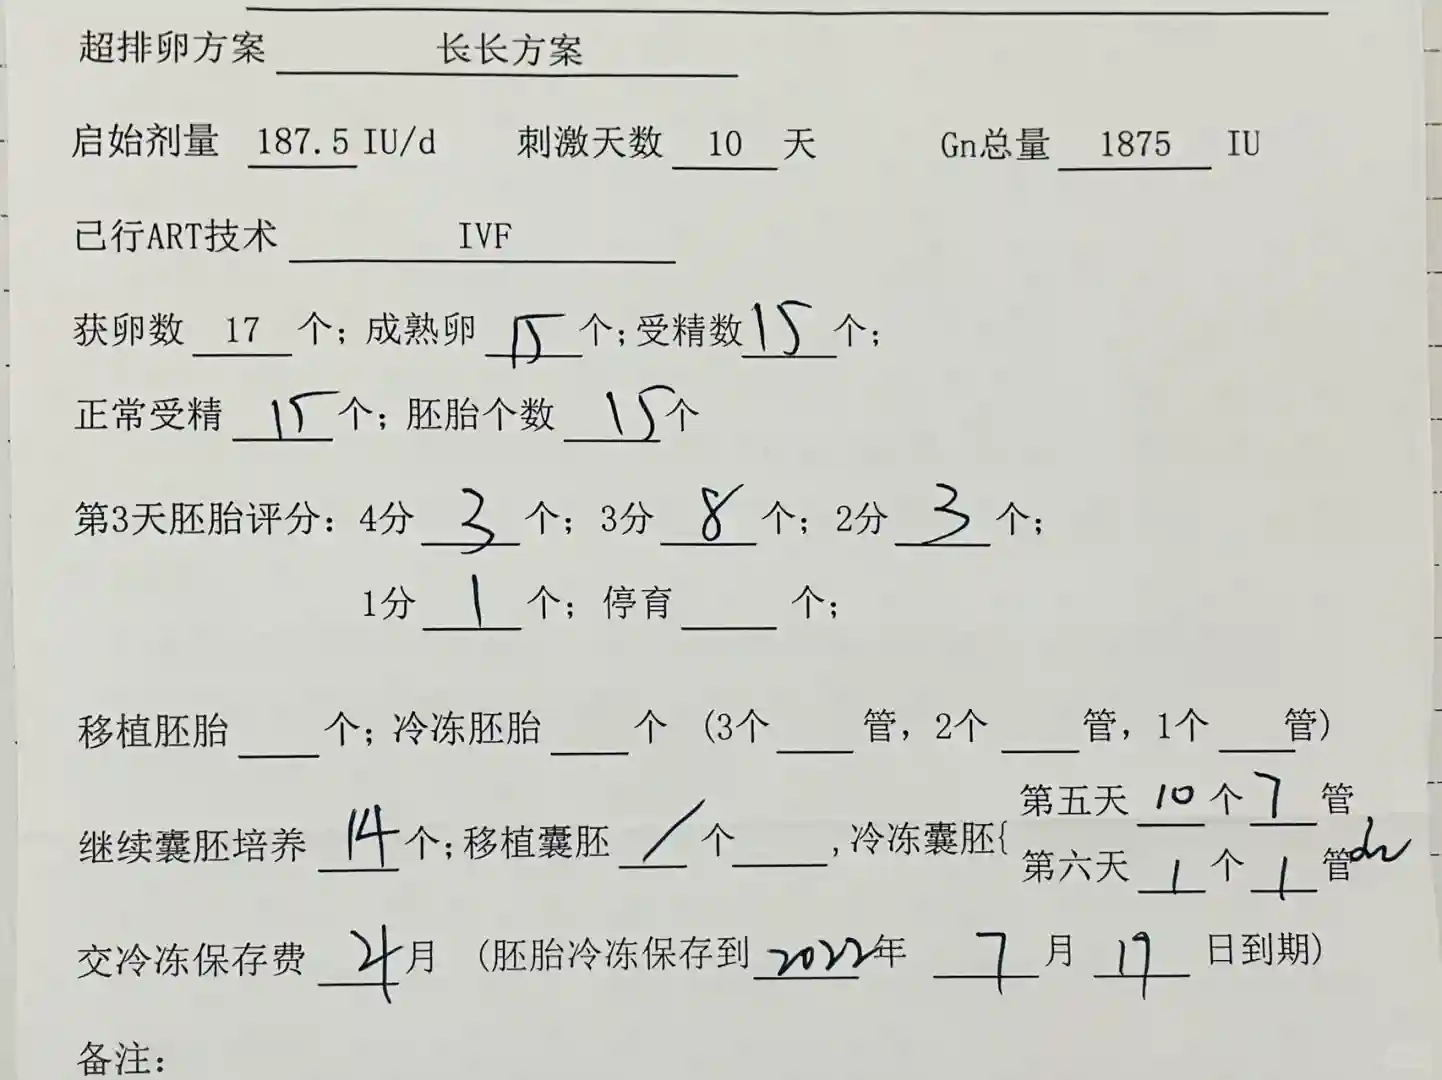 超排卵方案 长长方案
启始剂量 187.5 IU/d 刺激天数 10 天 Gn总量 1875 IU
已行ART技术 IVF
获卵数 17 个; 成熟卵 15 个; 受精数 15 个;
正常受精 15 个; 胚胎个数 15 个
第3天胚胎评分: 4分 3 个; 3分 8 个; 2分 3 个;
1分 1 个; 停育 个;
移植胚胎 个; 冷冻胚胎 个 (3个 管, 2个 管, 1个 管)
第五天 10 个 7 管
继续囊胚培养 14 个; 移植囊胚 / 个 , 冷冻囊胚{
第六天 1 个 1 管
交冷冻保存费 月 (胚胎冷冻保存到 2022 年 7 月 日到期)
备注: